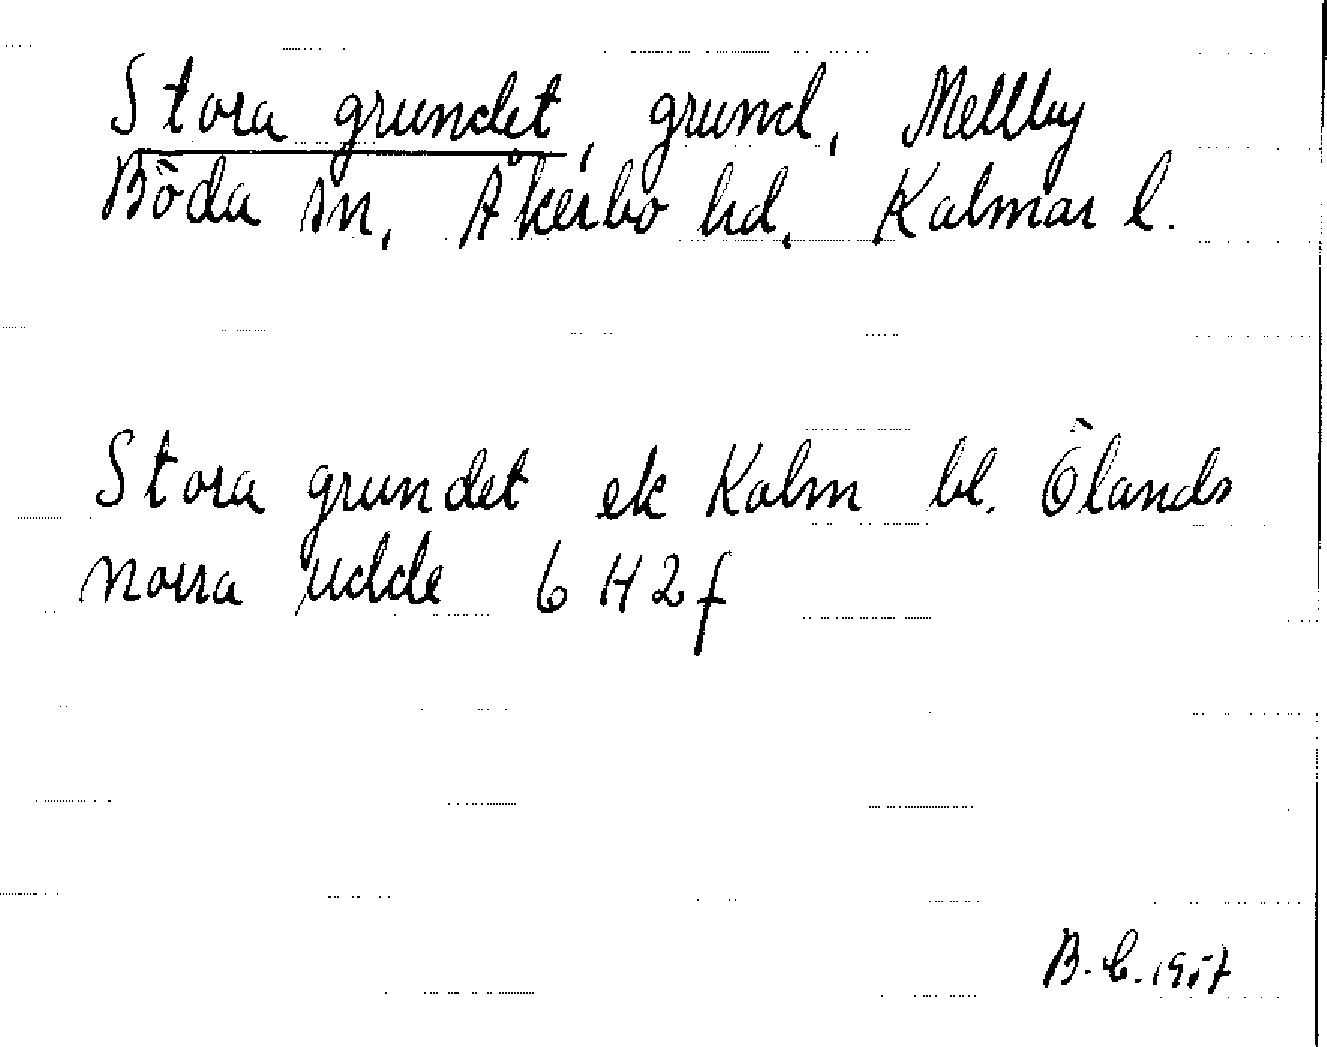 Stora grundet, grund, Mellby
Böda sn, Åkerbo hd, Kalmar l.
Stora grundet ek Kalm bl. Ölands
norra udde 6 H 2 f
B. C. 1957